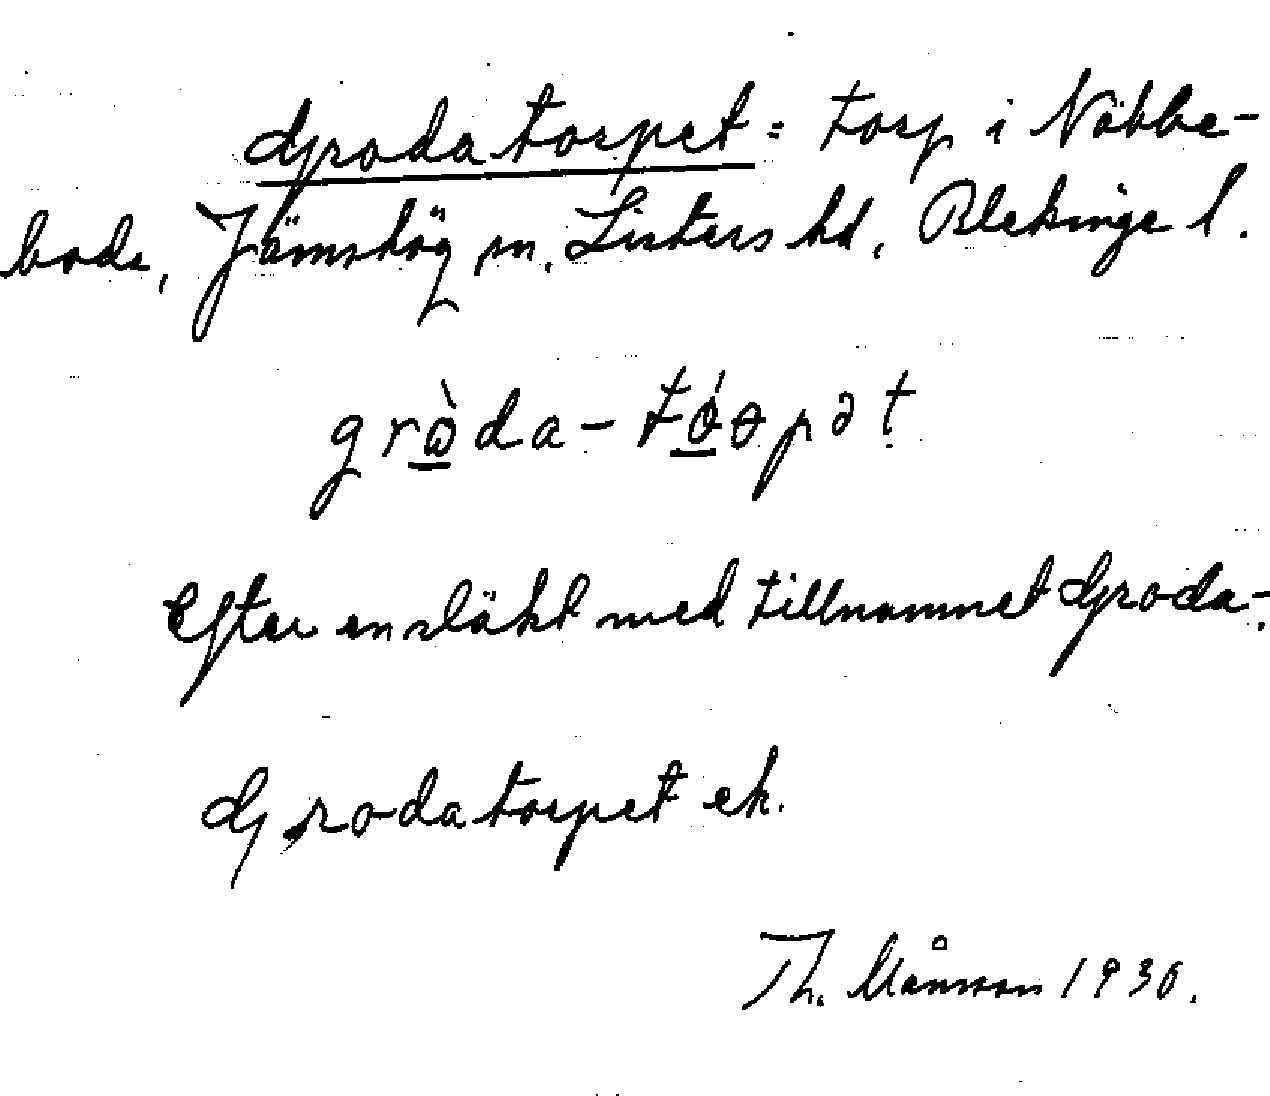 Grodatorpet = torp i Näbbe-
boda, Jämshög sn. Listers hd, Blekinge l.
gròda-tóɵpət
Efter en släkt med tillnamnet Groda-.
Grodatorpet ek.
Th. Månsson 1930.